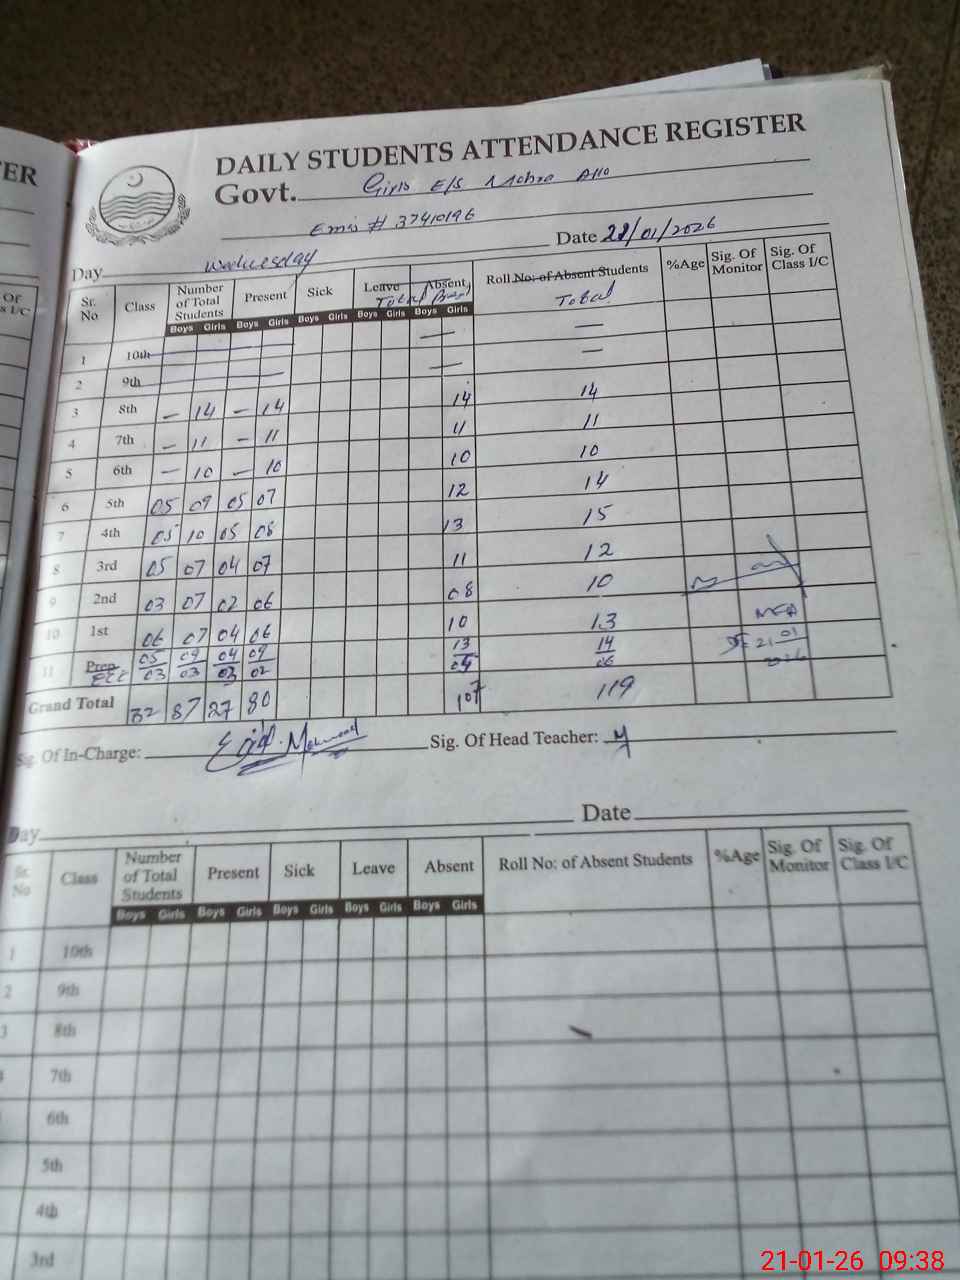 ER
Of
s I/C
DAILY STUDENTS ATTENDANCE REGISTER
Govt. Girls E/S Mohra
Emis # 37410196
Day Wednesday Date 21/01/2026
Sr. No Class Number of Total Students Present Sick Leave Absent Roll No: of Absent Students %Age Sig. Of Monitor Sig. Of Class I/C
Total Total
Boys Girls Boys Girls Boys Girls Boys Girls Boys Girls
1 10th — —
2 9th — —
3 8th — 14 — 14 14 14
4 7th — 11 — 11 11 11
5 6th — 10 — 10 10 10
6 5th 05 09 05 07 12 14
7 4th 05 10 05 08 13 15
8 3rd 05 07 04 07 11 12
9 2nd 03 07 02 06 08 10
10 1st 06 07 04 06 10 13
11 Prep 05 09 04 09 13 14
ECE 03 03 03 02 05 06
MEA
21 01
2026
Grand Total 32 87 27 80 107 119
Sig. Of In-Charge: Sig. Of Head Teacher:
Day Date
Sr. No Class Number of Total Students Present Sick Leave Absent Roll No: of Absent Students %Age Sig. Of Monitor Sig. Of Class I/C
Boys Girls Boys Girls Boys Girls Boys Girls Boys Girls
1 10th
2 9th
3 8th
4 7th
6th
5th
4th
3rd
21-01-26 09:38